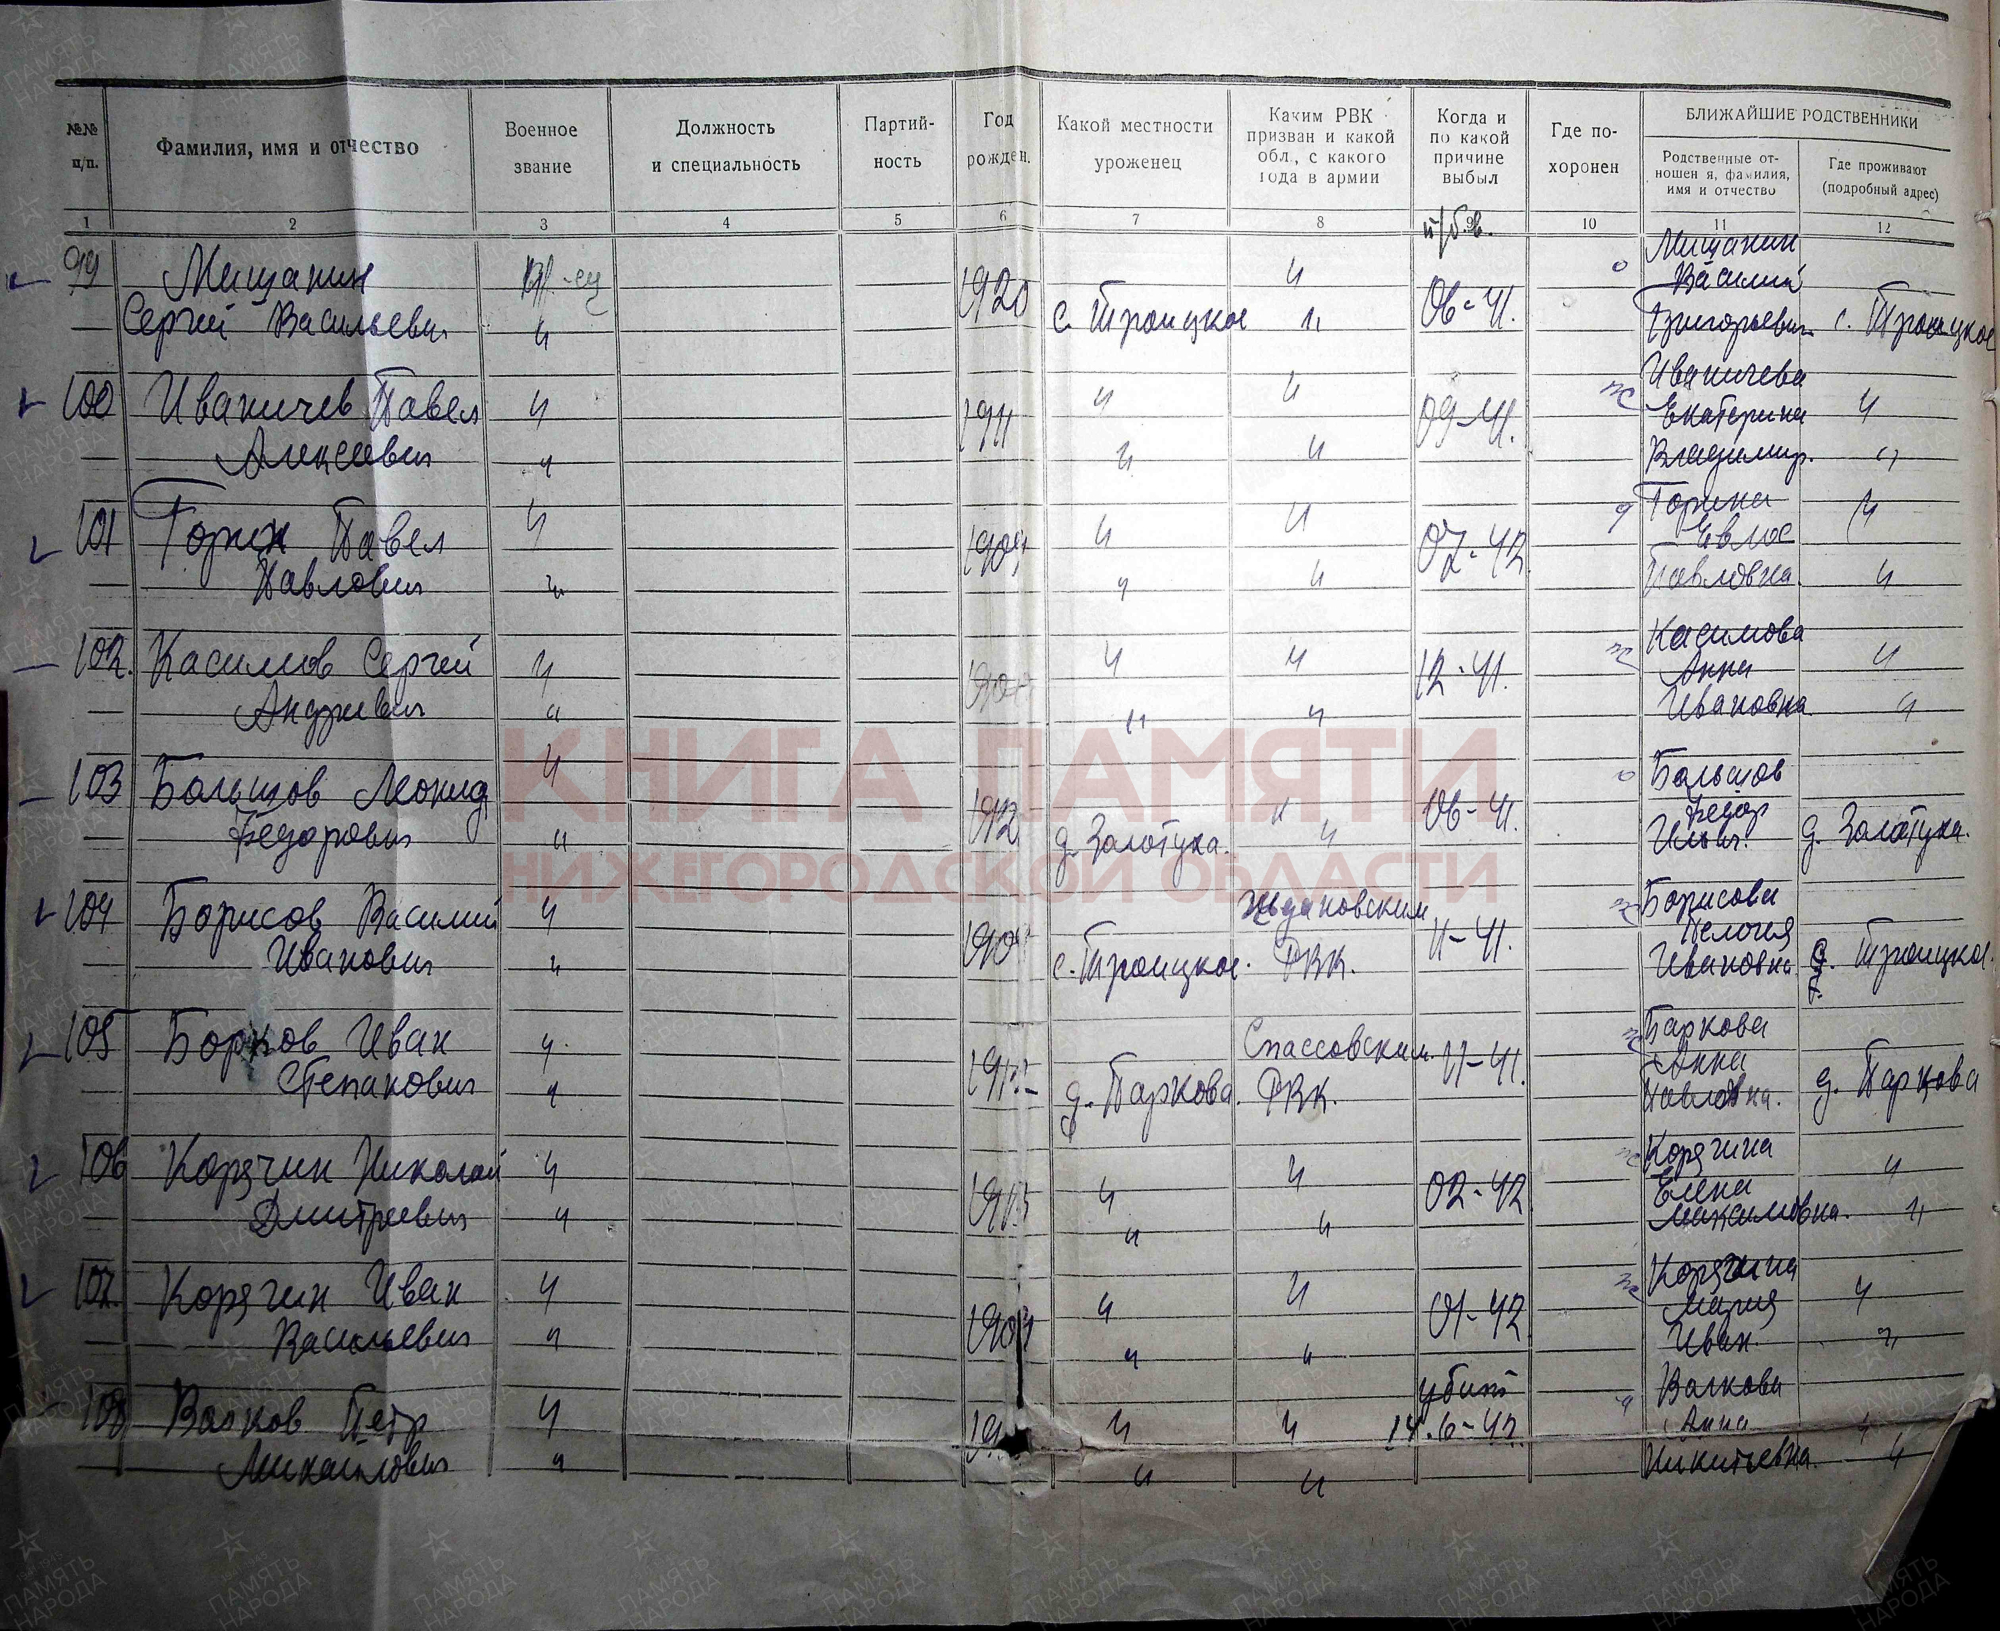 №№ п/п.
Фамилия, имя и отчество
Военное звание
Должность и специальность
Партий-ность
Год рожден.
Какой местности уроженец
Каким РВК призван и какой обл., с какого года в армии
Когда и по какой причине выбыл
Где по-хоронен
БЛИЖАЙШИЕ РОДСТВЕННИКИ
Родственные от-ношен я, фамилия, имя и отчество
Где проживают (подробный адрес)
1 2 3 4 5 6 7 8 9 10 11 12
п/б.в.
99 Мищанин 1920 с. Троицкое " 06-41. о Мищанин Василий
Сергей Васильевич " " Григорьевич с. Троицкое
100 Иваничев Павел " 1911 " " 09-41. ж Иваничева Екатерина "
Алексеевич " " " Владимир. "
101 Горин Павел " 1909 " " 07-42 Горина "
Павлович " " " Павловна. "
102. Касимов Сергей " " " 12-41. ж Касимова Анна "
Андреевич " " " Ивановна "
103 Большов Леонид " 1912 " 06-41. о Большов Федор
Федорович " д. Залотуха. " Ильич. д. Залотуха.
104 Борисов Василий " Ждановским 11-41. ж Борисова
Иванович " с. Троицкое. РВК. Ивановна с. Троицкое.
105 Борков Иван " Спассовским 11-41. ж Баркова Анна
Степанович " д. Паркова. РВК. Павловна. д. Паркова
106 Корячин Николай " " " 02-42 ж Корячина Елена "
Дмитриевич " " " Максимовна. "
107. Корягин Иван " " " 01-42 ж Корягина Мария "
Васильевич " " " Иван. "
убит
108 Волков Петр " 19 " " 14.6-42. Волкова Анна "
Михайлович " " " Никитьевна. "
КНИГА ПАМЯТИ
НИЖЕГОРОДСКОЙ ОБЛАСТИ
ПАМЯТЬ НАРОДА